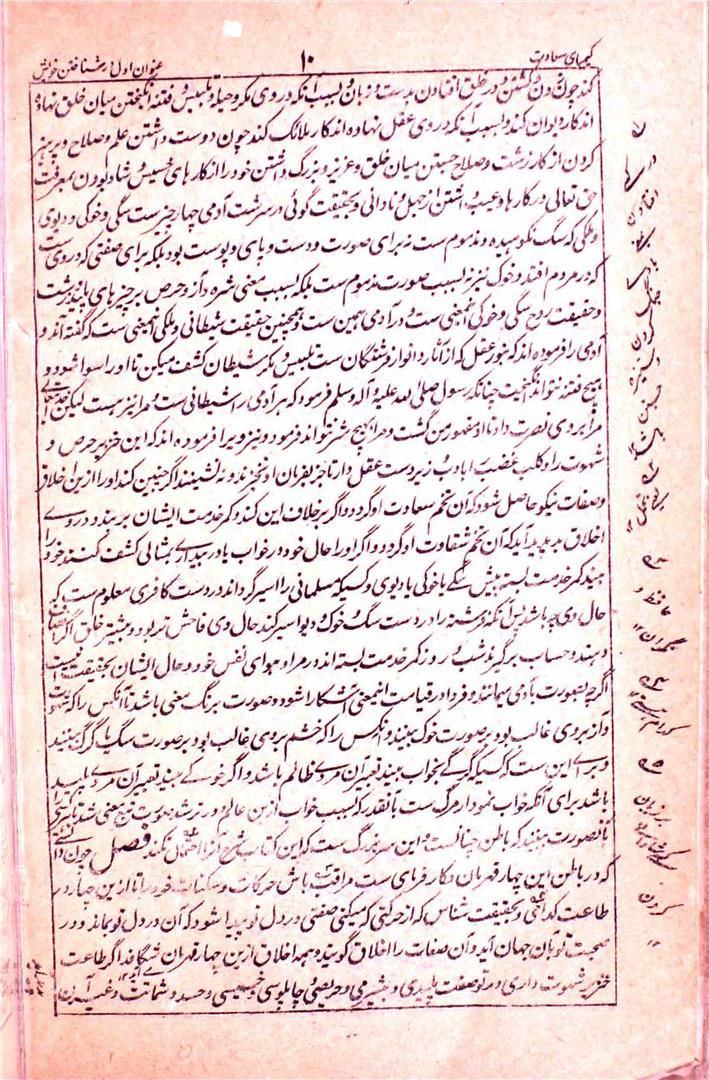 کیمیای سعادت
۱۰
عنوان اول در شناختن خویش
کند چون زدن و کشتن و در خلق افتادن بدست و زبان و بسبب آنکه در وی مکر و حیله و تلبیس و فتنه انگیختن میان خلق نهاده
اند کار دیوان کند و بسبب آنکه در وی عقل نهاده اند کار ملائک کند چون دوست داشتن علم و صلاح و پرهیز
کردن از کار زشت و صلاح جستن میان خلق و عزیز و بزرگ داشتن خود را از کارهای خسیس و شاد بودن بمعرفت
حق تعالی در کارها و عیب داشتن از جهل و نادانی و بحقیقت گوئی در سرشت آدمی چهار چیز ست سگی و خوکی و دیوی
و ملکی که سگ نکوهیده و مذموم ست نه برای صورت و دست و پای و پوست بود بلکه برای صفتی که در وی ست
که در مردم افتد و خوک نیز نه بسبب صورت مذموم ست بلکه بسبب معنی شره و آز و حرص بر چیزهای پلید و زشت
و حقیقت روح سگی و خوکی اینمعنی ست و در آدمی همین ست و همچنین حقیقت شیطانی و ملکی اینمعنی ست که گفته آمد و
آدمی را فرموده اند که بنور عقل که از آثار و انوار فرشتگان ست تلبیس و مکر شیطان کشف میکن تا او رسوا شود و
هیچ فتنه نتواند انگیخت چنانکه رسول صلی الله علیه و آله وسلم فرمود که هر آدمی را شیطانی ست و مرا نیز هست لیکن خدایتعالی
مرا بر وی نصرت داد تا او مقهور من گشت و مرا هیچ شر نتواند فرمود و نیز ویرا فرموده اند که این خنزیر حرص و
شهوت را و کلب غضب را بادب و زیر دست عقل دار تا جز بفرمان او نخیزند و نه نشینند اگر چنین کند او را ازین اخلاق
و صفات نیکو حاصل شود که آن تخم سعادت او گردد و اگر برخلاف این کند و کمر خدمت ایشان بر بندد در وے
اخلاق بد پدید آید که آن تخم شقاوت او گردد و اگر او را حال خود در خواب یا در بیداری بمثالی کشف کنند خود را
بیند کمر خدمت بسته پیش سگے یا خوکی یا دیوی و کسیکه مسلمانی را اسیر گرداند در دست کافری معلوم ست که
حال وی چه باشد پس آنکه فرشته را در دست سگ و خوک و دیو اسیر کند حال وی فاحش تر بود و بیشتر خلق اگر انصاف
دهند و حساب برگیرند شب و روز کمر خدمت بسته اند در مراد هوای نفس خود و حال ایشان بحقیقت اینست
اگرچه بصورت بآدمی میمانند و فردا در قیامت اینمعنی آشکارا شود و صورت برنگ معنی باشد تا آنکس را که شهوت
و آز بر وی غالب بود بر صورت خوک بینند و آنکس را که خشم بر وی غالب بود بر صورت سگ یا گرگ بینند
و برای این ست که کسیکه گرگے بخواب بیند تعبیر آن مردی ظالم باشد و اگر خوکے بیند تعبیر آن مردی پلید
باشد برای آنکه خواب نمودار مرگ ست بآنقدر که بسبب خواب ازین عالم دورتر شد صورت تبع معنی شد تا هر کسی را
بآنصورت بیند که باطن چنانست و این سر بزرگ ست که این کتاب شرح آنرا احتمال نکند فصل چون دانستی
که در باطن این چهار قهرمان و کارفرمای ست مراقب باش حرکات و سکنات خود را تا ازین چهار در
طاعت کدامی و بحقیقت شناس که از حرکتی که میکنی صفتی در دل تو پیدا شود که آن در دل تو بماند و در
صحبت تو بآن جهان آید و آن صفات را اخلاق گویند و همه اخلاق ازین چهار قهرمان شگافد اگر طاعت
خنزیر شهوت داری در تو صفت پلیدی و بیشرمی و حریصی و چاپلوسی و خسیسی و حسد و شماتت و غیر آن